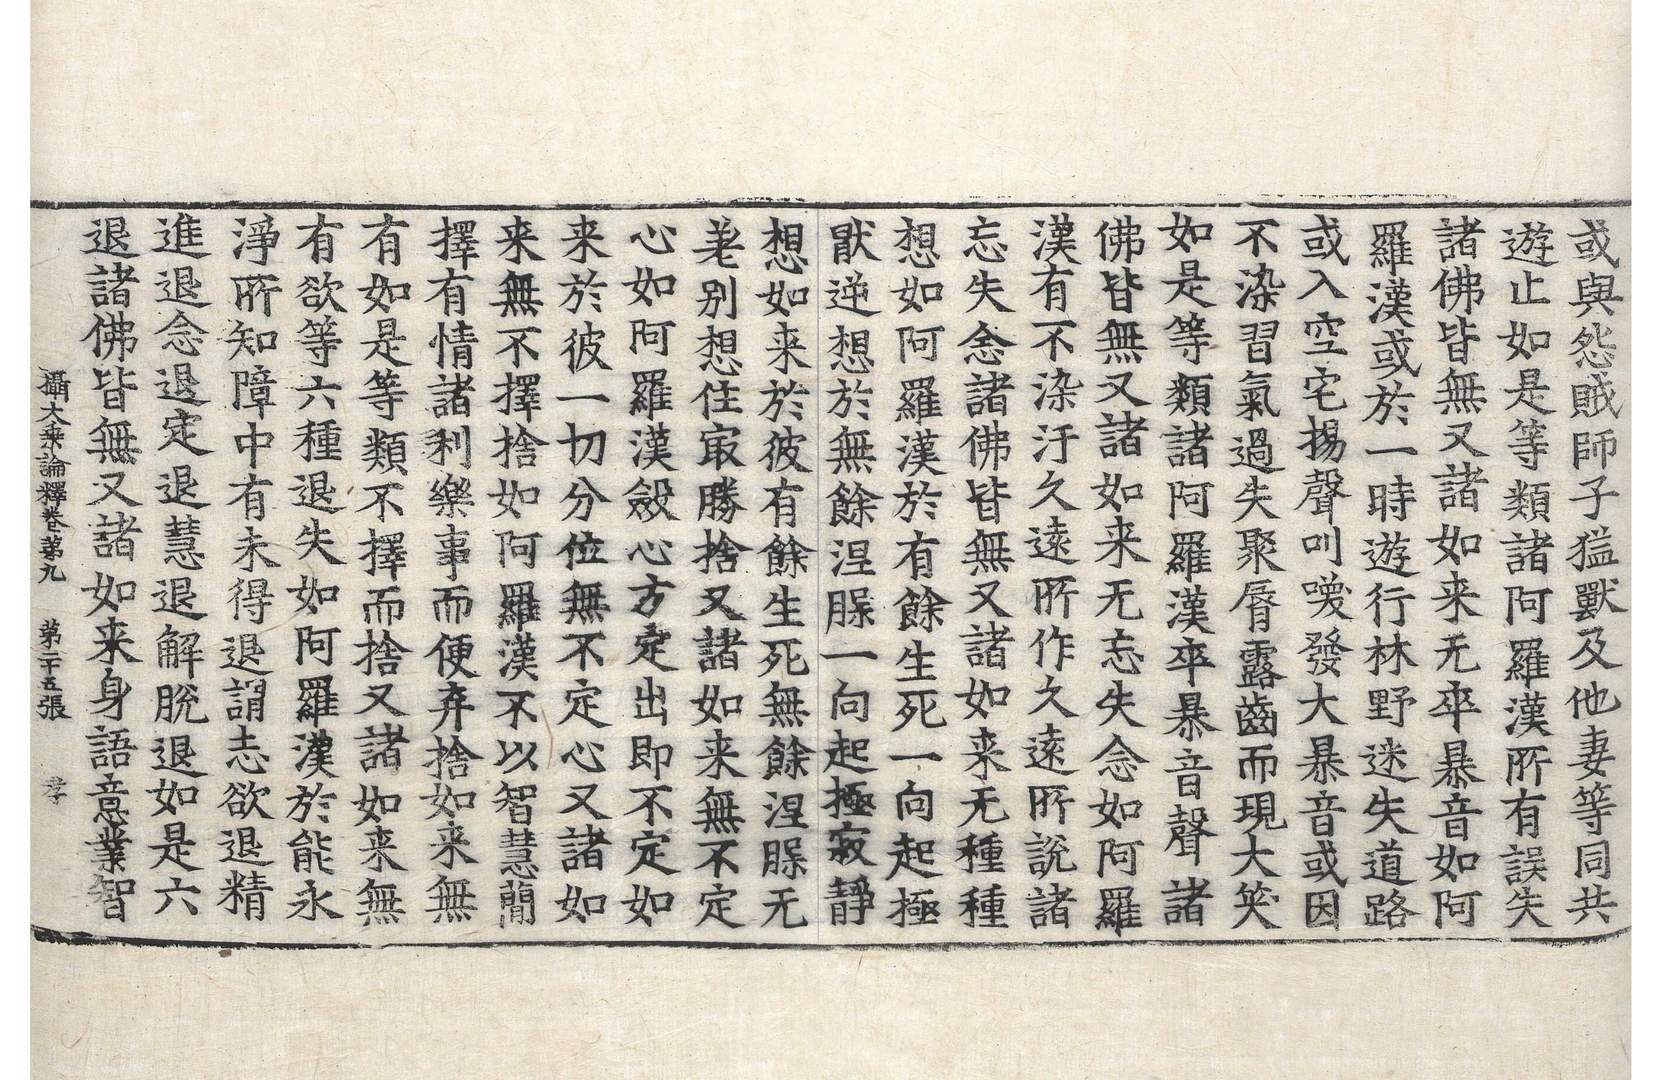 或與怨賊師子猛獸及他妻等同共
遊止如是等類諸阿羅漢所有誤失
諸佛皆無又諸如来无卒暴音如阿
羅漢或於一時遊行林野迷失道路
或入空宅揚聲叫喚發大暴音或因
不染習氣過失聚脣露齒而現大笑
如是等類諸阿羅漢卒暴音聲諸
佛皆無又諸如来无忘失念如阿羅
漢有不染汙久遠所作久遠所說諸
忘失念諸佛皆無又諸如来无種種
想如阿羅漢於有餘生死一向起極
猒逆想於無餘涅槃一向起極寂靜
想如来於彼有餘生死無餘涅槃无
差別想住㝡勝捨又諸如来無不定
心如阿羅漢斂心方定出即不定如
来於彼一切分位無不定心又諸如
来無不擇捨如阿羅漢不以智慧簡
擇有情諸利樂事而便弃捨如来無
有如是等類不擇而捨又諸如来無
有欲等六種退失如阿羅漢於能永
淨所知障中有未得退謂志欲退精
進退念退定退慧退解脫退如是六
退諸佛皆無又諸如来身語意業智
攝大乘論釋卷第九　第二十五張　孝